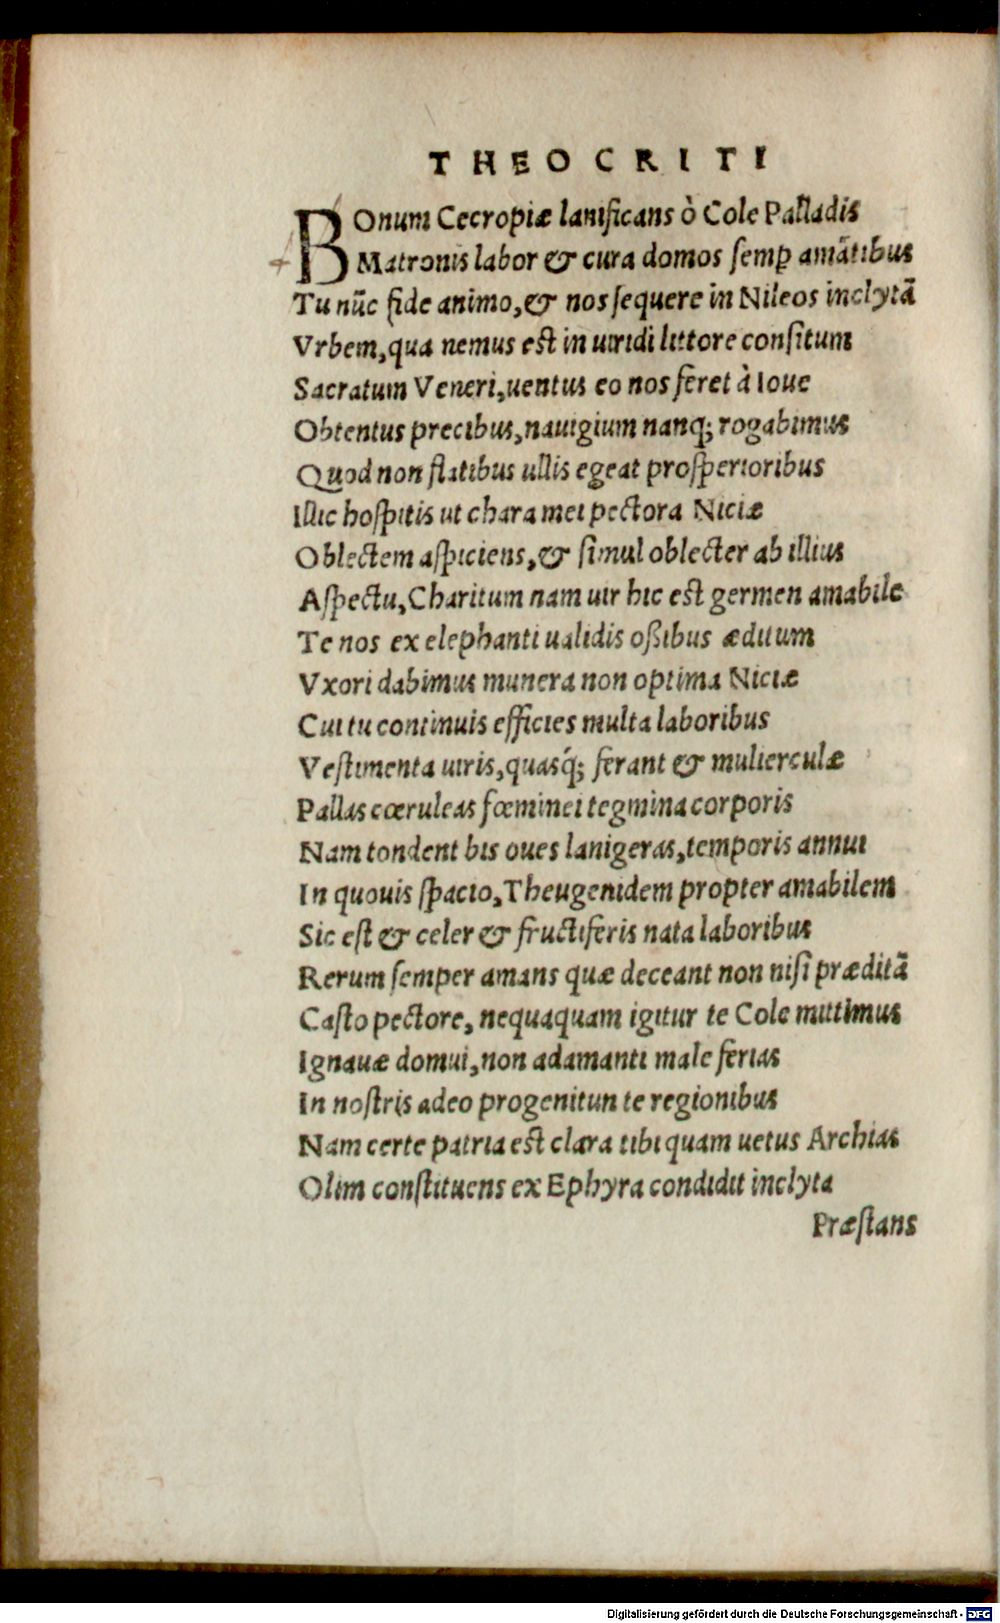 THEOCRITI
BOnum Cecropiæ lanificans ò Cole Palladis
Matronis labor & cura domos semꝑ amãtibus
Tu nũc fide animo, & nos sequere in Nileos inclytã
Vrbem, qua nemus est in uiridi littore consitum
Sacratum Veneri, uentus eo nos feret à Ioue
Obtentus precibus, nauigium nanq; rogabimus
Quod non flatibus ullis egeat prosperioribus
Illic hospitis ut chara mei pectora Niciæ
Oblectem aspiciens, & simul oblecter ab illius
Aspectu, Charitum nam uir hic est germen amabile
Te nos ex elephanti ualidis oßibus æditum
Vxori dabimus munera non optima Niciæ
Cui tu continuis efficies multa laboribus
Vestimenta uiris, quasq́; ferant & mulierculæ
Pallas cœruleas fœminei tegmina corporis
Nam tondent bis oues lanigeras, temporis annui
In quouis spacio, Theugenidem propter amabilem
Sic est & celer & fructiferis nata laboribus
Rerum semper amans quæ deceant non nisi præditã
Casto pectore, nequaquam igitur te Cole mittimus
Ignauæ domui, non adamanti male ferias
In nostris adeo progenitun te regionibus
Nam certe patria est clara tibi quam uetus Archias
Olim constituens ex Ephyra condidit inclyta
Præstans
Digitalisierung gefördert durch die Deutsche Forschungsgemeinschaft - DFG